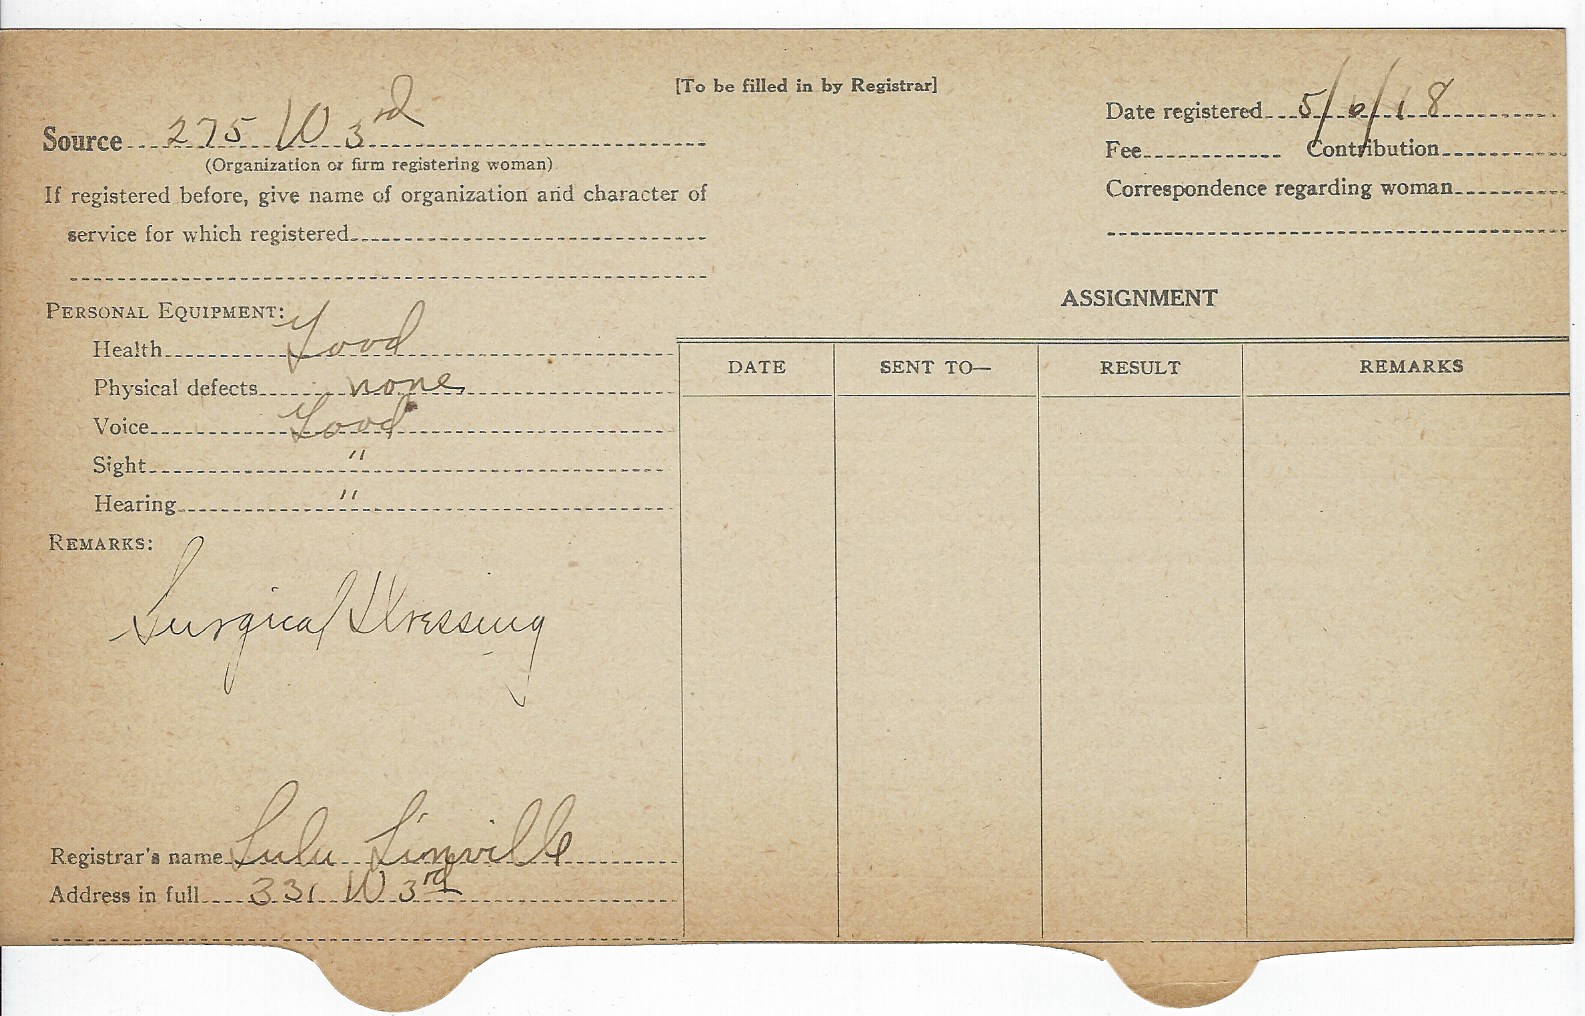 [To be filled in by Registrar]
Source 275 W 3rd
(Organization or firm registering woman)
If registered before, give name of organization and character of
service for which registered
Date registered 5/6/18
Fee Contribution
Correspondence regarding woman
PERSONAL EQUIPMENT:
Health Good
Physical defects none
Voice Good
Sight "
Hearing "
REMARKS:
Surgical Dressing
Registrar's name Lulu Linville
Address in full 331 W 3rd
ASSIGNMENT
DATE SENT TO— RESULT REMARKS